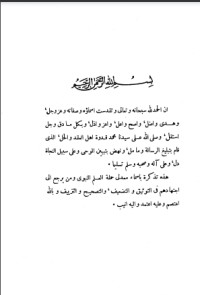 بسم الله الرحمن الرحيم
ان الحمد لله سبحانه وتعالى وتقدست اسماؤه وصفاته وعز وجل
وهدى واضل وأعز وأذل وبكل ما دق وجل
استقل وصلى الله على سيدنا محمد قدوة اهل العقد والحل الذي
قام بتبليغ الرسالة وما مل ونهض بتبيين الوحي وعلى سبيل النجاة
دل وعلى آله وصحبه وسلم تسليما
هذه تذكرة بأسماء معدلي حملة العلم النبوي ومن يرجع الى
اجتهادهم في التوثيق والتضعيف والتصحيح والتزييف وبالله
اعتصم وعليه اعتمد واليه انيب